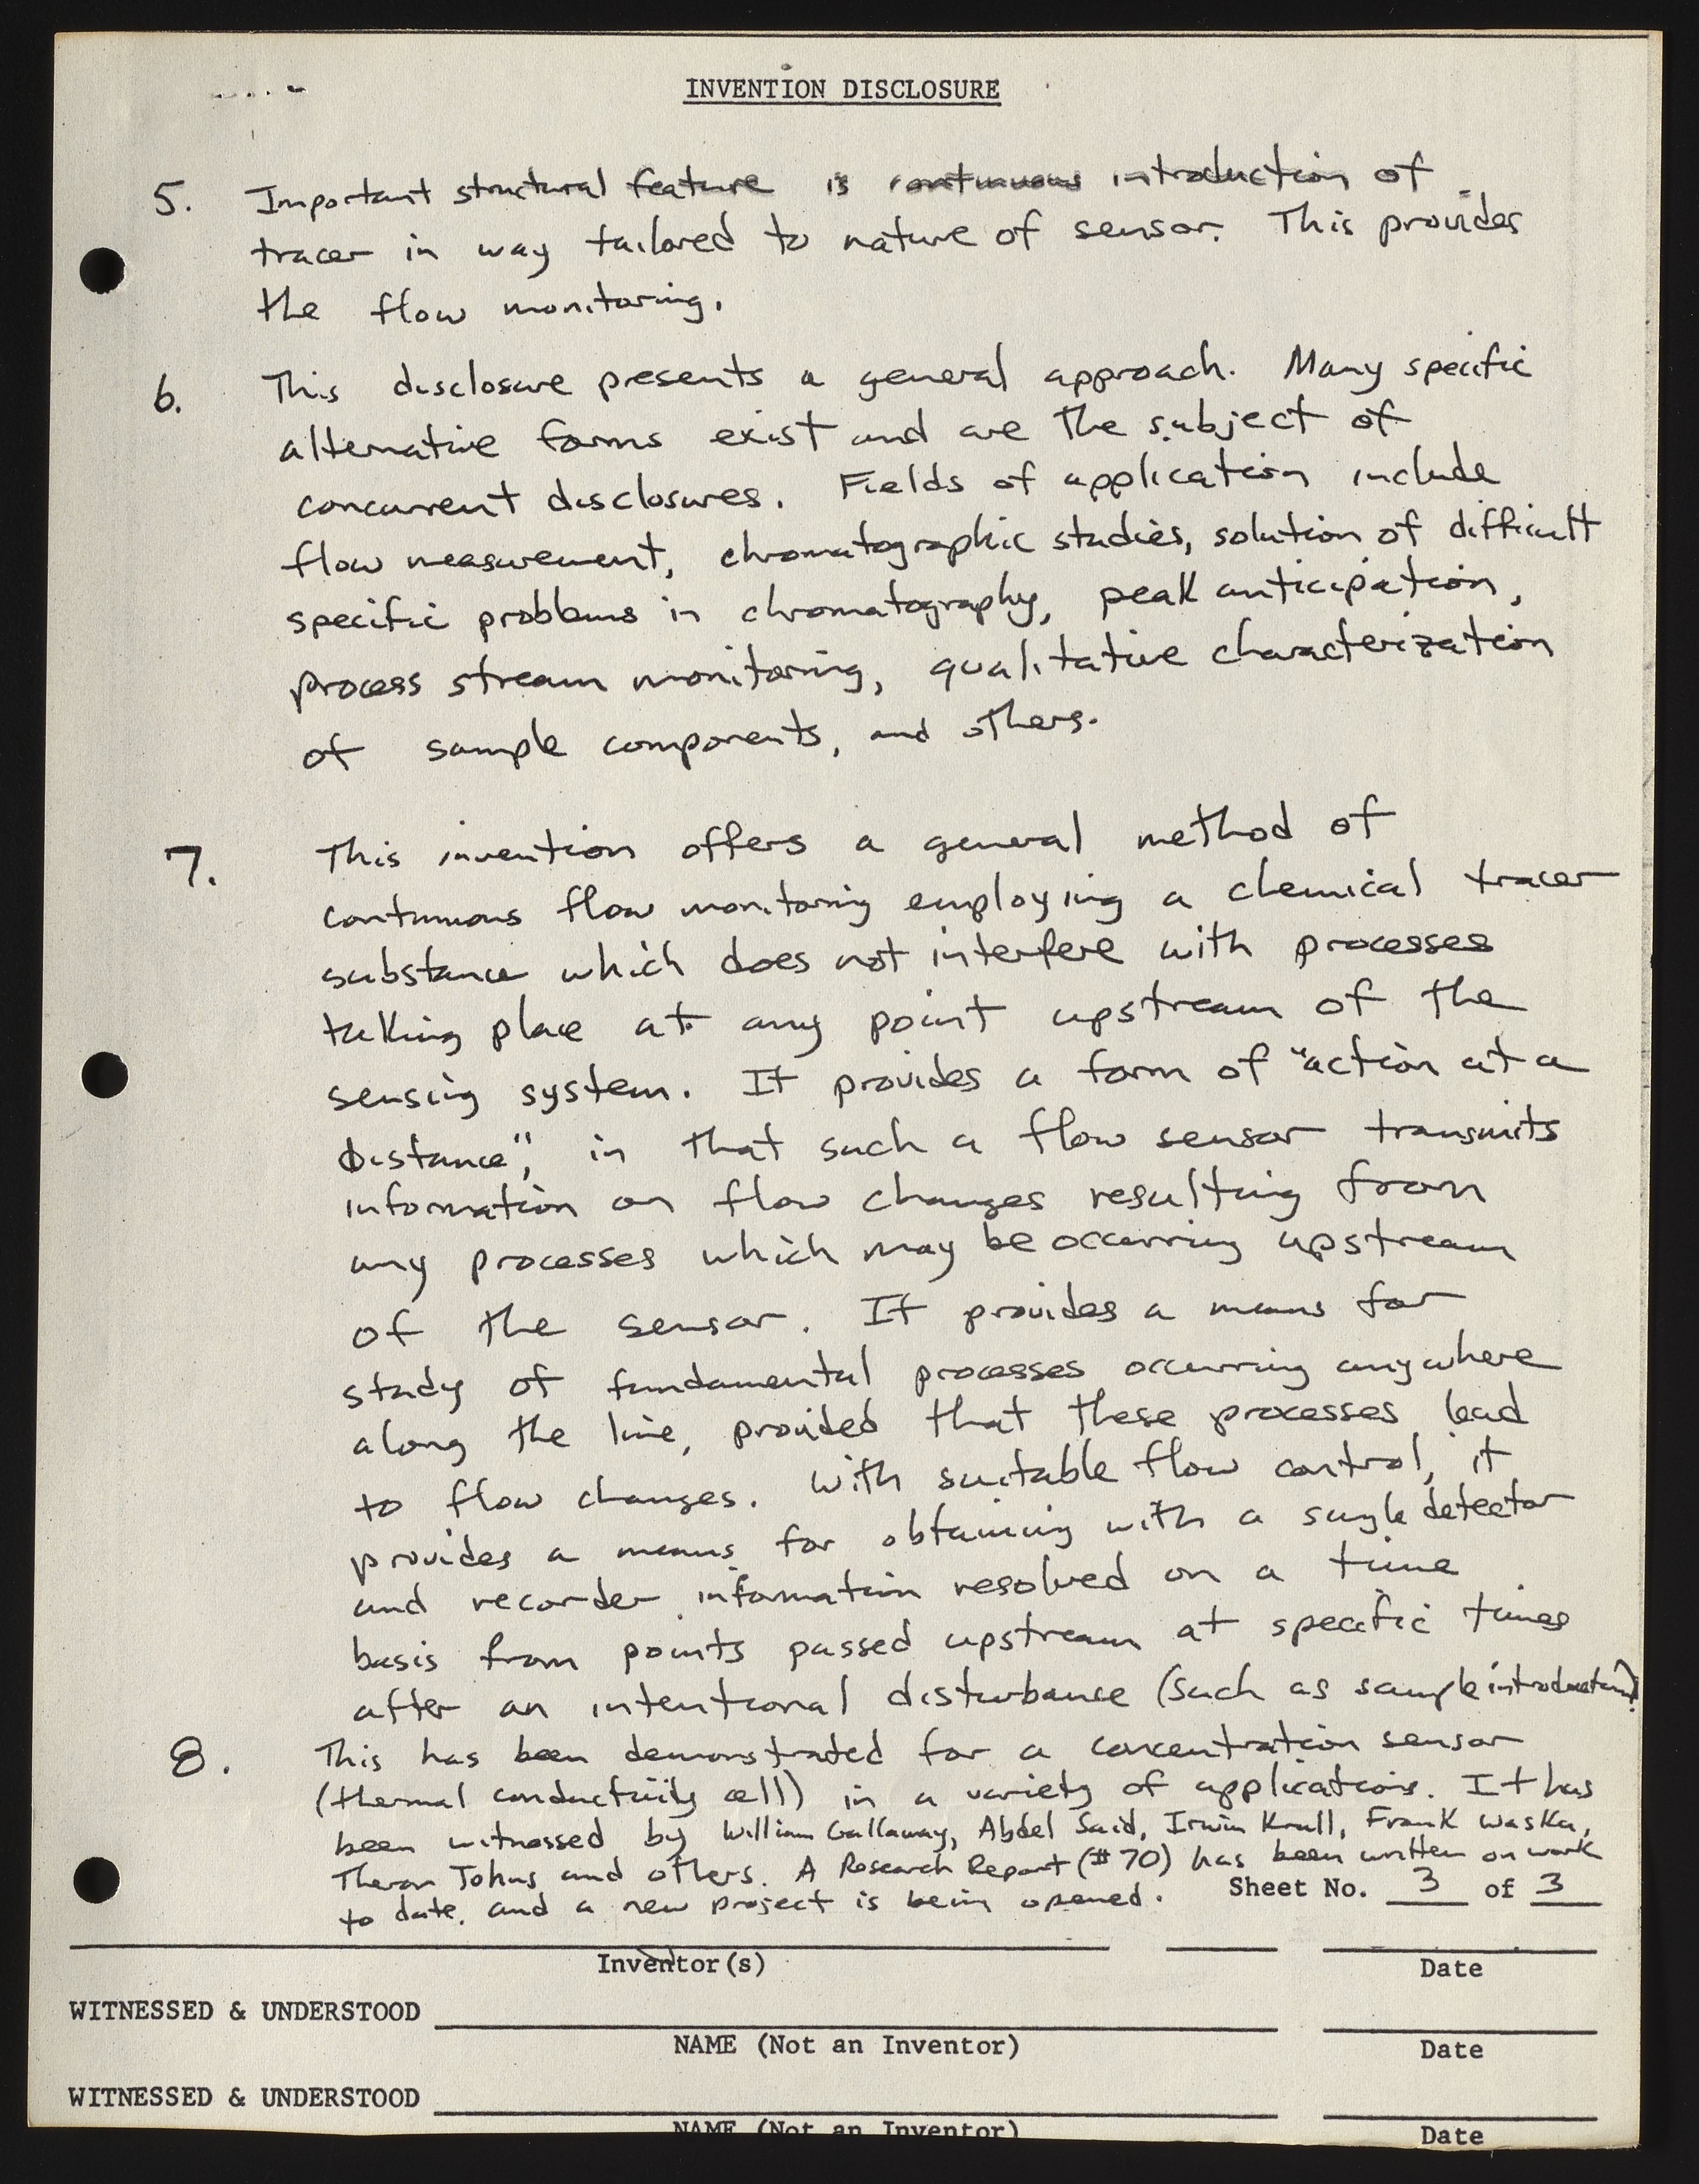 INVENTION DISCLOSURE
5. Important structural feature is continuous introduction of
tracer in way tailored to nature of sensor. This provides
the flow monitoring.
6. This disclosure presents a general approach. Many specific
alternative forms exist and are the subject of
concurrent disclosures. Fields of application include
flow measurement, chromatographic studies, solution of difficult
specific problems in chromatography, peak anticipation,
process stream monitoring, qualitative characterization
of sample components, and others.
7. This invention offers a general method of
continuous flow monitoring employing a chemical tracer
substance which does not interfere with processes
taking place at any point upstream of the
sensing system. It provides a form of "action at a
Distance", in that such a flow sensor transmits
information on flow changes resulting from
any processes which may be occurring upstream
of the sensor. It provides a means for
study of fundamental processes occurring anywhere
along the line, provided that these processes lead
to flow changes. With suitable flow control, it
provides a means for obtaining with a single detector
and recorder information resolved on a time
basis from points passed upstream at specific times
after an intentional disturbance (such as sample introduction).
8. This has been demonstrated for a concentration sensor
(thermal conductivity cell) in a variety of applications. It has
been witnessed by William Gallaway, Abdel Said, Irwin Krull, Frank Waska,
Theron Johns and others. A Research Report (#70) has been written on work
to date, and a new project is being opened. Sheet No. 3 of 3
Inventor(s) Date
WITNESSED & UNDERSTOOD
NAME (Not an Inventor) Date
WITNESSED & UNDERSTOOD
NAME (Not an Inventor) Date